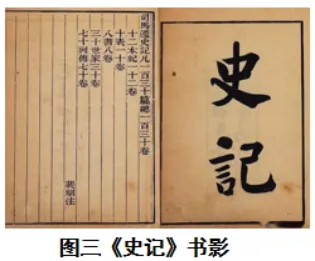 司馬遷史記凡一百三十篇總一百三十卷
十二本紀一十二卷
十表一十卷
八書八卷
三十世家三十卷
七十列傳七十卷
裴駰注
史記
图三《史记》书影